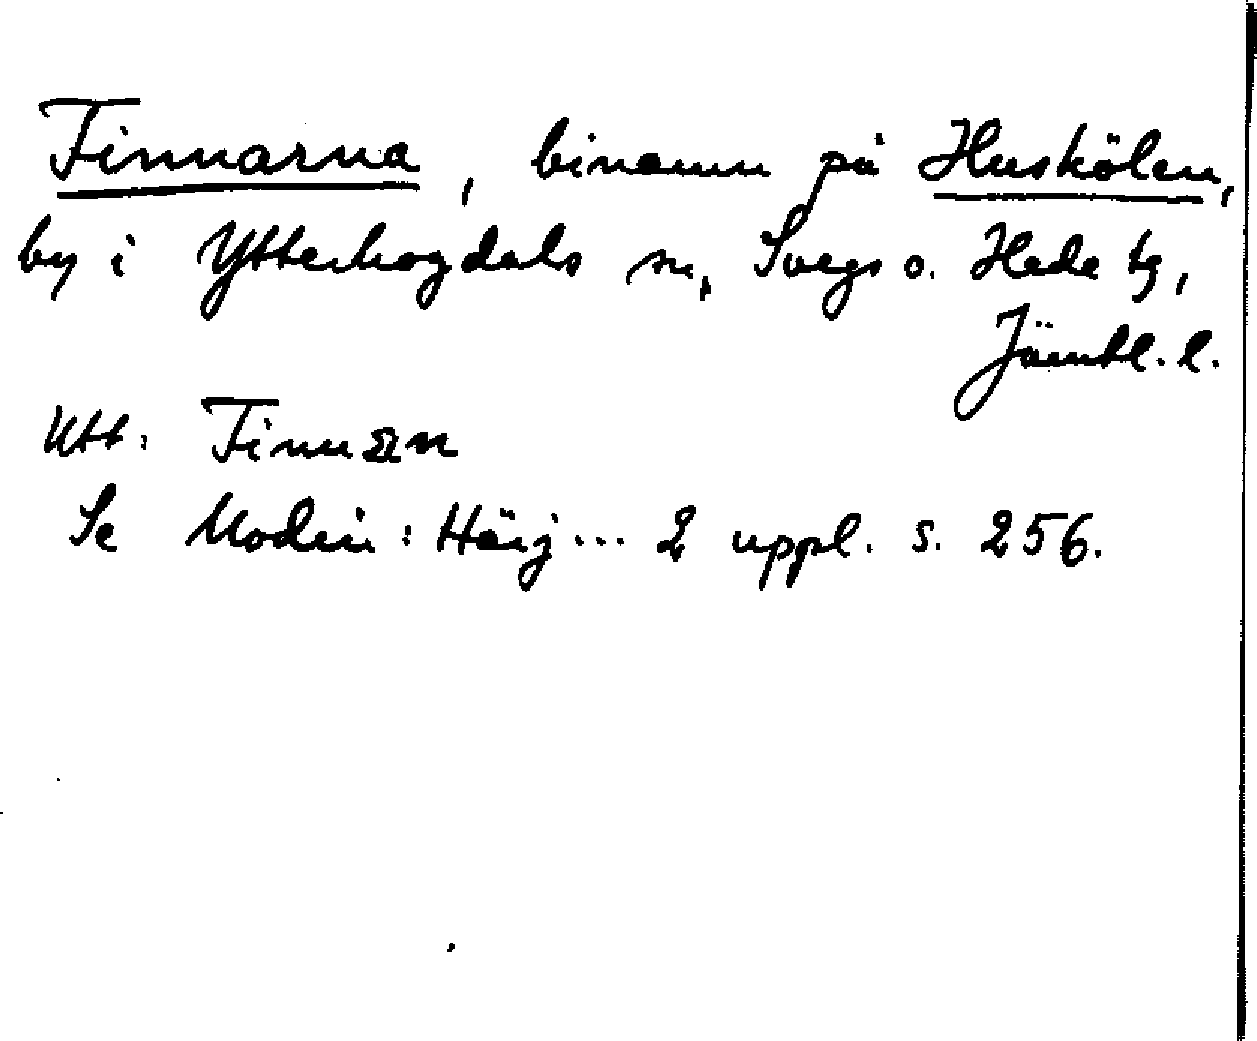 Finnarna, binamn på Huskölen,
by i Ytterhogdals sn, Svegs o. Hede tg,
Jämtl. l.
Utt:
Se Modin: Härj... 2 uppl. s. 256.